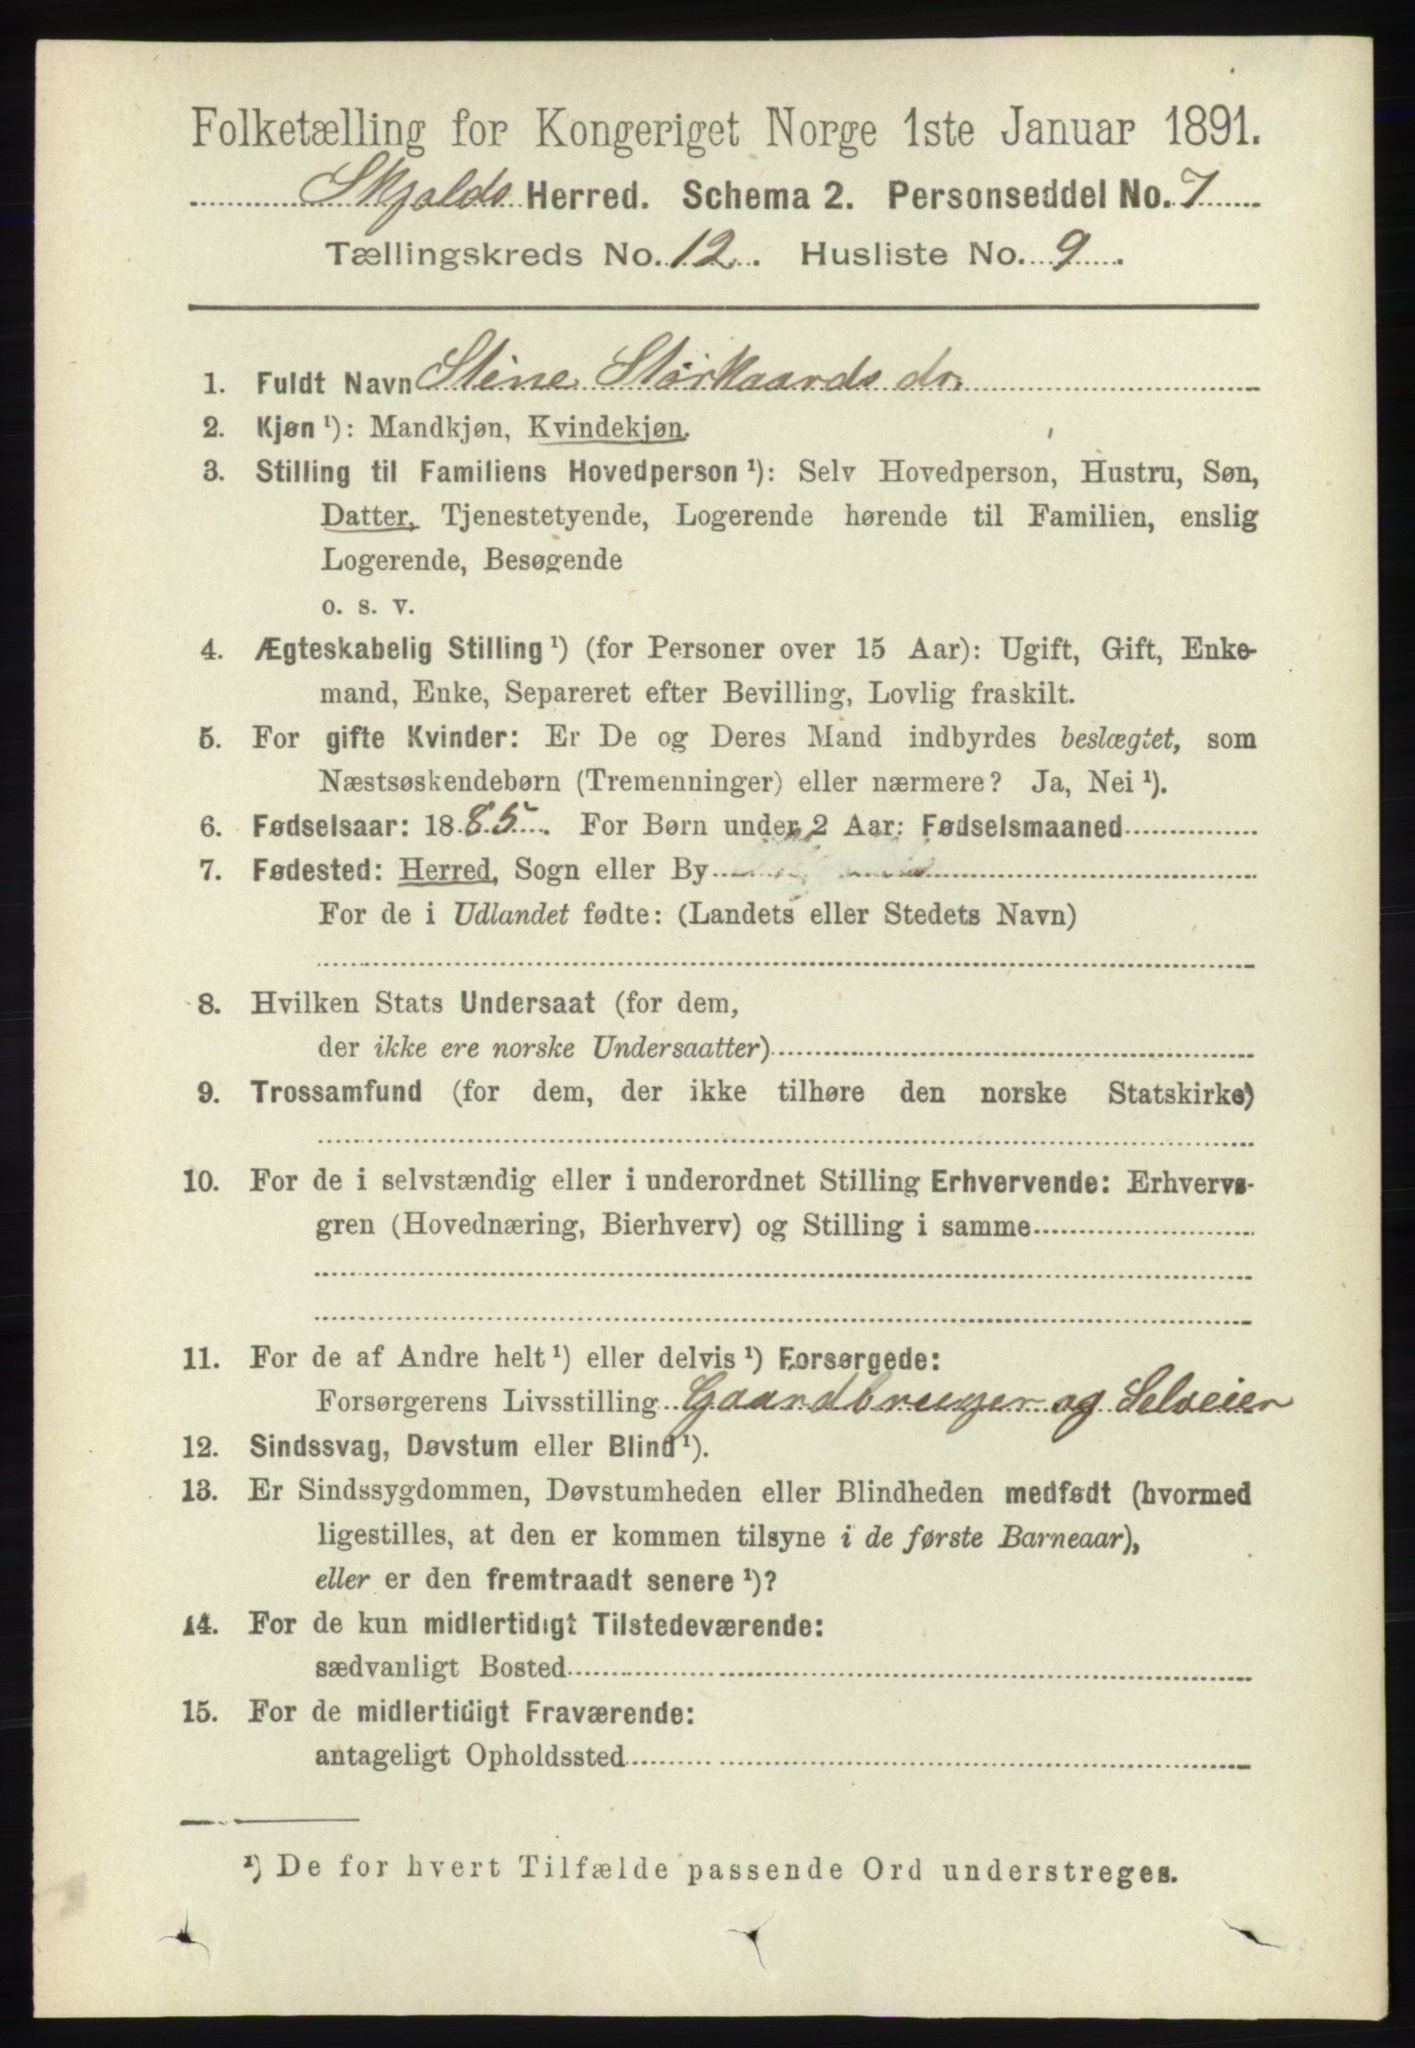 Folketælling for Kongeriget Norge 1ste Januar 1891.
Skjolds Herred. Schema 2. Personseddel No. 7
Tællingskreds No. 12. Husliste No. 9.
1. Fuldt Navn Stine Storkaards dr.
2. Kjøn ¹): Mandkjøn, Kvindekjøn.
3. Stilling til Familiens Hovedperson ¹): Selv Hovedperson, Hustru, Søn,
Datter, Tjenestetyende, Logerende hørende til Familien, enslig
Logerende, Besøgende
o. s. v.
4. Ægteskabelig Stilling ¹) (for Personer over 15 Aar): Ugift, Gift, Enke-
mand, Enke, Separeret efter Bevilling, Lovlig fraskilt.
5. For gifte Kvinder: Er De og Deres Mand indbyrdes beslægtet, som
Næstsøskendebørn (Tremenninger) eller nærmere? Ja, Nei ¹).
6. Fødselsaar: 1885. For Børn under 2 Aar: Fødselsmaaned
7. Fødested: Herred, Sogn eller By
For de i Udlandet fødte: (Landets eller Stedets Navn)
8. Hvilken Stats Undersaat (for dem,
der ikke ere norske Undersaatter)
9. Trossamfund (for dem, der ikke tilhøre den norske Statskirke)
10. For de i selvstændig eller i underordnet Stilling Erhvervende: Erhvervs-
gren (Hovednæring, Bierhverv) og Stilling i samme
11. For de af Andre helt ¹) eller delvis ¹) Forsørgede:
Forsørgerens Livsstilling Gaardbruger og Selveier
12. Sindssvag, Døvstum eller Blind ¹).
13. Er Sindssygdommen, Døvstumheden eller Blindheden medfødt (hvormed
ligestilles, at den er kommen tilsyne i de første Barneaar),
eller er den fremtraadt senere ¹)?
14. For de kun midlertidigt Tilstedeværende:
sædvanligt Bosted
15. For de midlertidigt Fraværende:
antageligt Opholdssted
¹) De for hvert Tilfælde passende Ord understreges.